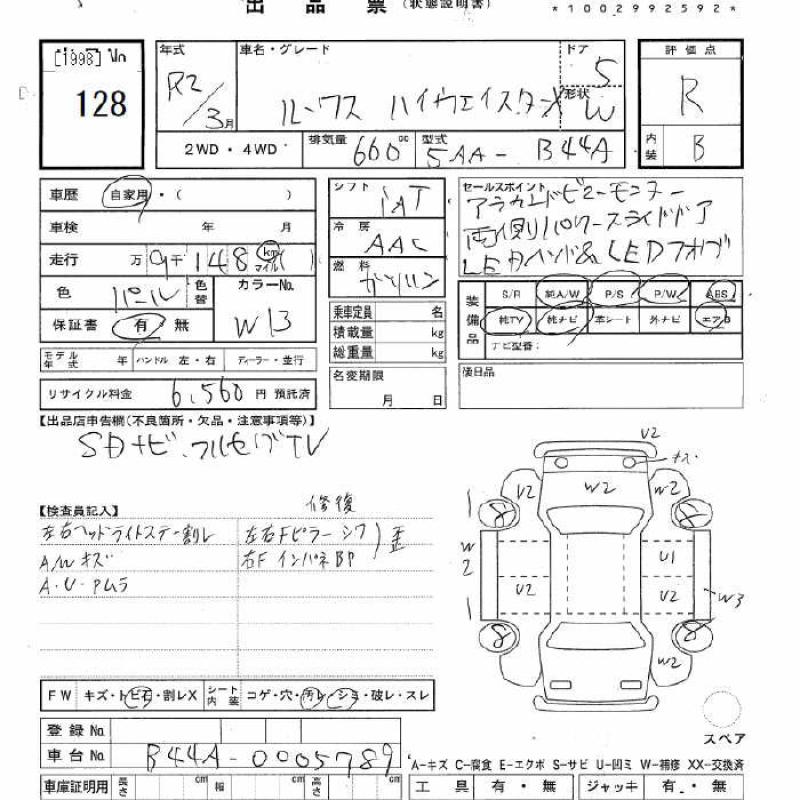 出品票 (状態説明書)
*1002992592*
[1998] No
128
年式 R2/3月
車名・グレード ルークス ハイウェイスターX
ドア 5
形状 W
評価点 R
内装 B
2WD・4WD
排気量 660cc
型式 5AA-B44A
車歴 自家用・( )
車検 年 月
走行 万9千148km マイル( )
色 パール 色替
カラーNo. W13
保証書 有 無
モデル年式 年 ハンドル 左・右 ディーラー・並行
リサイクル料金 6,560円 預託済
シフト IAT
冷房 AAC
燃料 ガソリン
乗車定員 名
積載量 kg
総重量 kg
名変期限 月 日
セールスポイント
アラウンドビューモニター
両側パワースライドドア
LED
LEDフォグ
装備品 S/R 純A/W P/S P/W ABS
純TV 純ナビ 本シート 外ナビ エアB
ナビ型番:
後日品
【出品店申告欄(不良箇所・欠品・注意事項等)】
SDナビ.フルセグTV
【検査員記入】
修復
左右ヘッドライトステー割レ
左右Fピラー シワ
歪
A/Wキズ
右F インパネ部
A・U・Pムラ
V2
キズ
V2 W2 W2
8 8
W2
U1
V2 V2
W3
8 8
W2
スペア
FW キズ・トビ石・割レX
シート内装 コゲ・穴・汚レ・シミ・破レ・スレ
登録No.
車台No. B44A-0005789
A-キズ C-腐食 E-エクボ S-サビ U-凹ミ W-補修 XX-交換済
車庫証明用 長さ cm 幅 cm 高さ cm
工具 有・無 ジャッキ 有・無